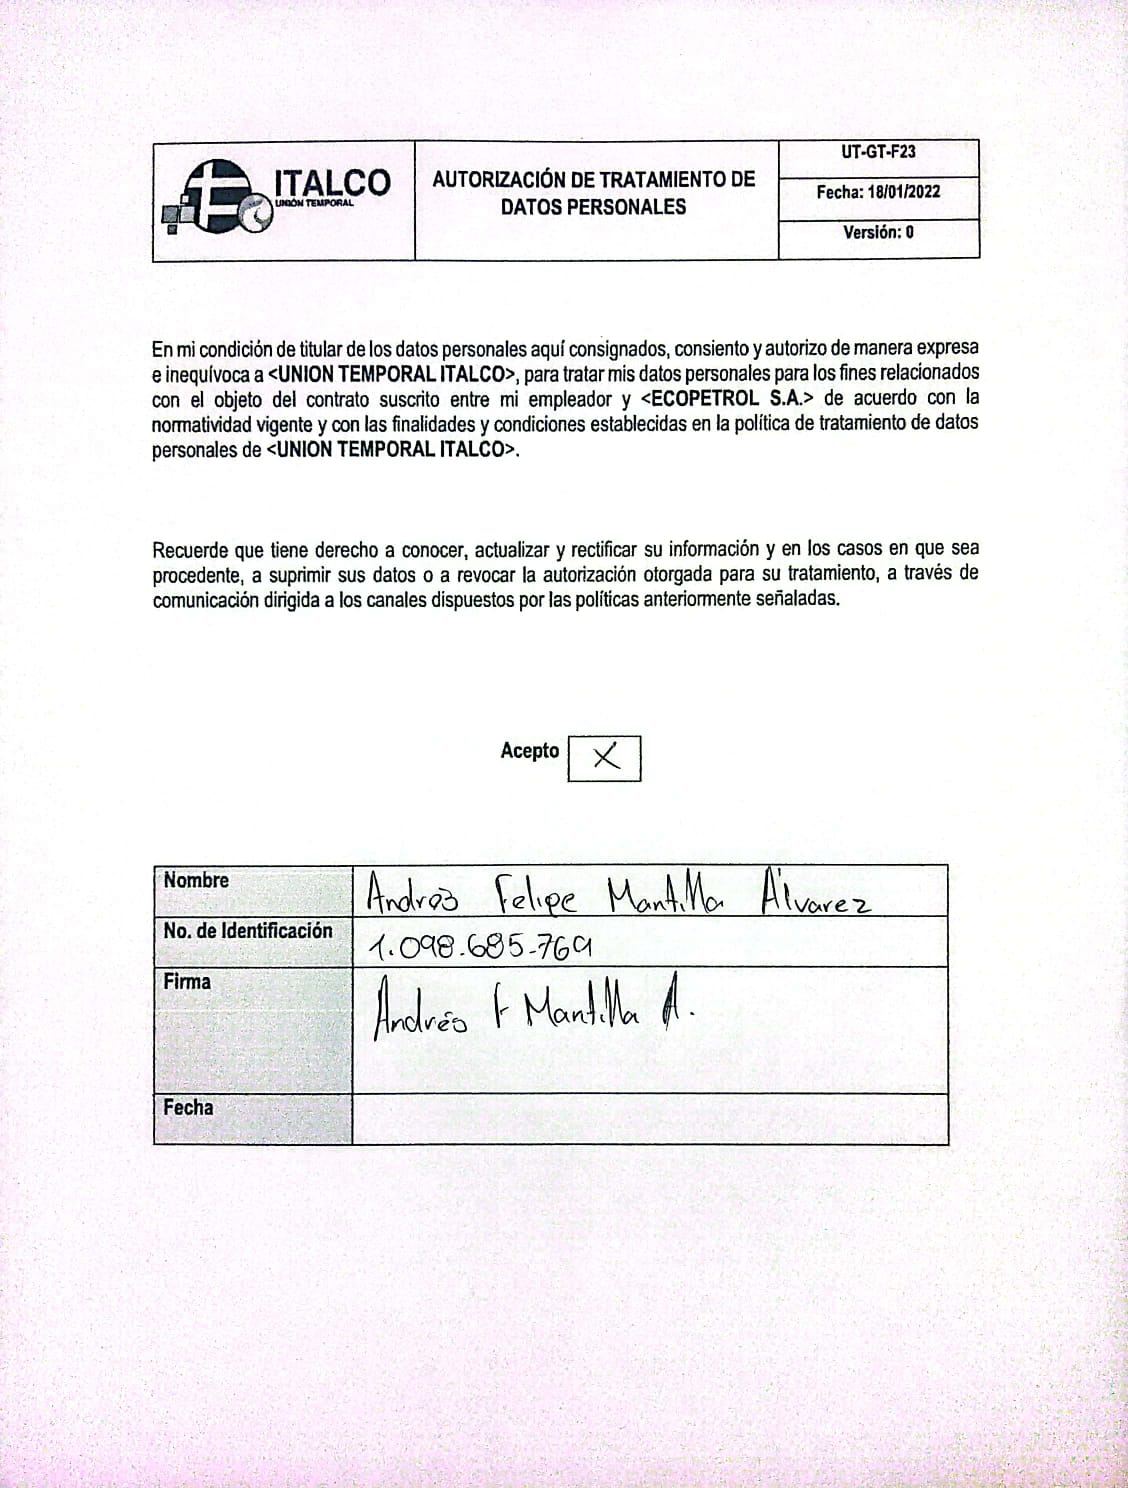 ITALCO
UNIÓN TEMPORAL
AUTORIZACIÓN DE TRATAMIENTO DE
DATOS PERSONALES
UT-GT-F23
Fecha: 18/01/2022
Versión: 0
En mi condición de titular de los datos personales aquí consignados, consiento y autorizo de manera expresa
e inequívoca a <UNION TEMPORAL ITALCO>, para tratar mis datos personales para los fines relacionados
con el objeto del contrato suscrito entre mi empleador y <ECOPETROL S.A.> de acuerdo con la
normatividad vigente y con las finalidades y condiciones establecidas en la política de tratamiento de datos
personales de <UNION TEMPORAL ITALCO>.
Recuerde que tiene derecho a conocer, actualizar y rectificar su información y en los casos en que sea
procedente, a suprimir sus datos o a revocar la autorización otorgada para su tratamiento, a través de
comunicación dirigida a los canales dispuestos por las políticas anteriormente señaladas.
Acepto X
Nombre Andrés Felipe Mantilla Álvarez
No. de Identificación 1.098.685.769
Firma Andrés F Mantilla A.
Fecha